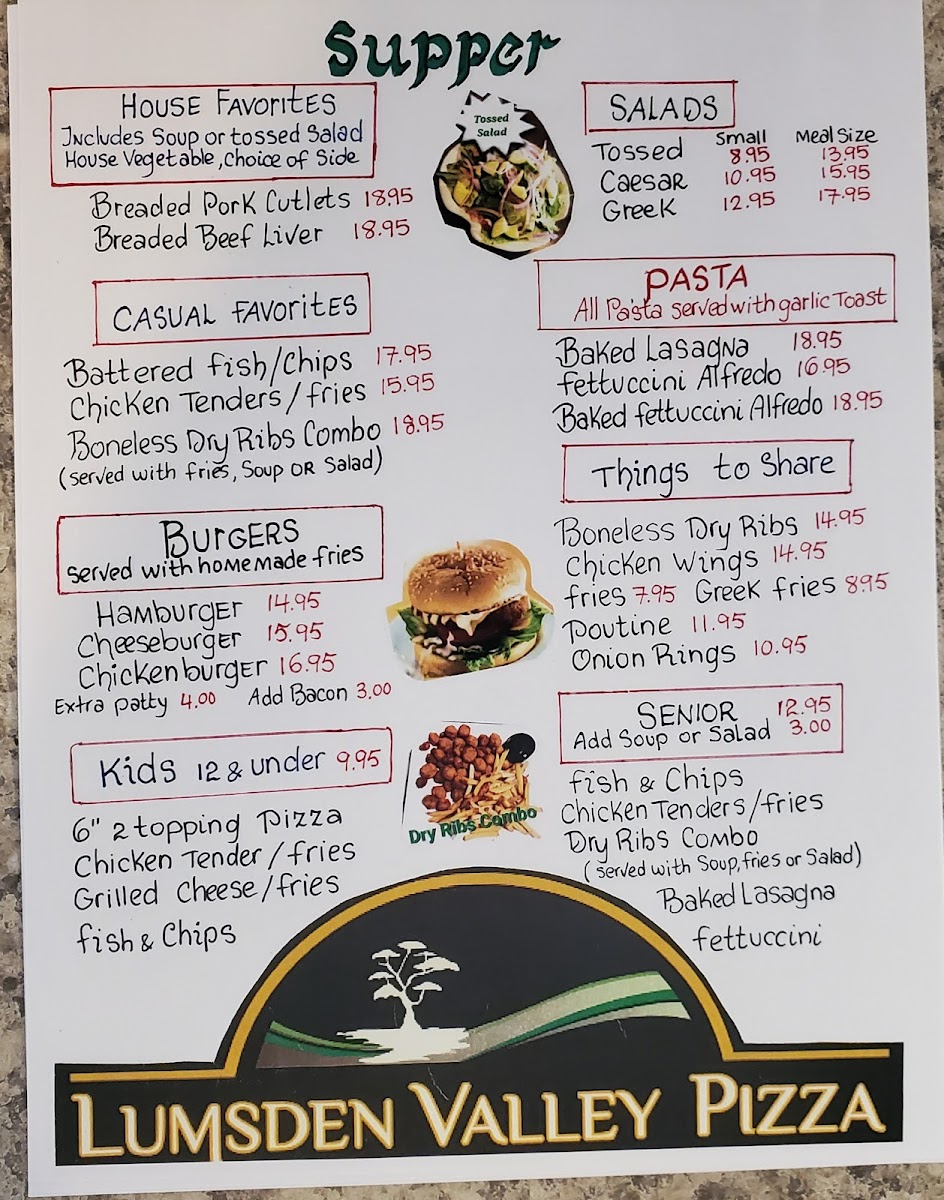 Supper
HOUSE FAVORITES
Includes Soup or tossed Salad
House Vegetable, choice of Side
Breaded Pork Cutlets 18.95
Breaded Beef Liver 18.95
Tossed
Salad
SALADS
Small Meal Size
Tossed 8.95 13.95
Caesar 10.95 15.95
Greek 12.95 17.95
CASUAL FAVORITES
Battered fish/Chips 17.95
Chicken Tenders/fries 15.95
Boneless Dry Ribs Combo 18.95
(served with fries, Soup OR Salad)
PASTA
All Pasta served with garlic Toast
Baked Lasagna 18.95
fettuccini Alfredo 16.95
Baked fettuccini Alfredo 18.95
Things to Share
Boneless Dry Ribs 14.95
Chicken Wings 14.95
fries 7.95 Greek fries 8.95
Poutine 11.95
Onion Rings 10.95
BURGERS
served with homemade fries
HAMBURGER 14.95
Cheeseburger 15.95
Chickenburger 16.95
Extra patty 4.00 Add Bacon 3.00
SENIOR 12.95
Add Soup or Salad 3.00
fish & Chips
Chicken Tenders/fries
Dry Ribs Combo
(served with Soup, fries or Salad)
Baked Lasagna
fettuccini
Kids 12 & under 9.95
6" 2 topping Pizza
Chicken Tender/fries
Grilled Cheese/fries
fish & Chips
Dry Ribs Combo
LUMSDEN VALLEY PIZZA